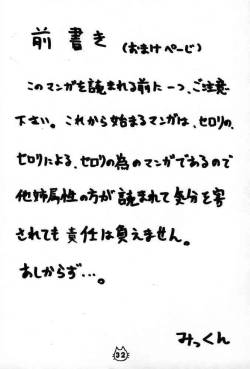 前書き(おまけページ)
このマンガを読まれる前に一つ、ご注意
下さい。これから始まるマンガは、セロリの、
セロリによる、セロリの為のマンガであるので
他姉属性の方が読まれて気分を害
されても責任は負えません。
あしからず…。
みっくん
32